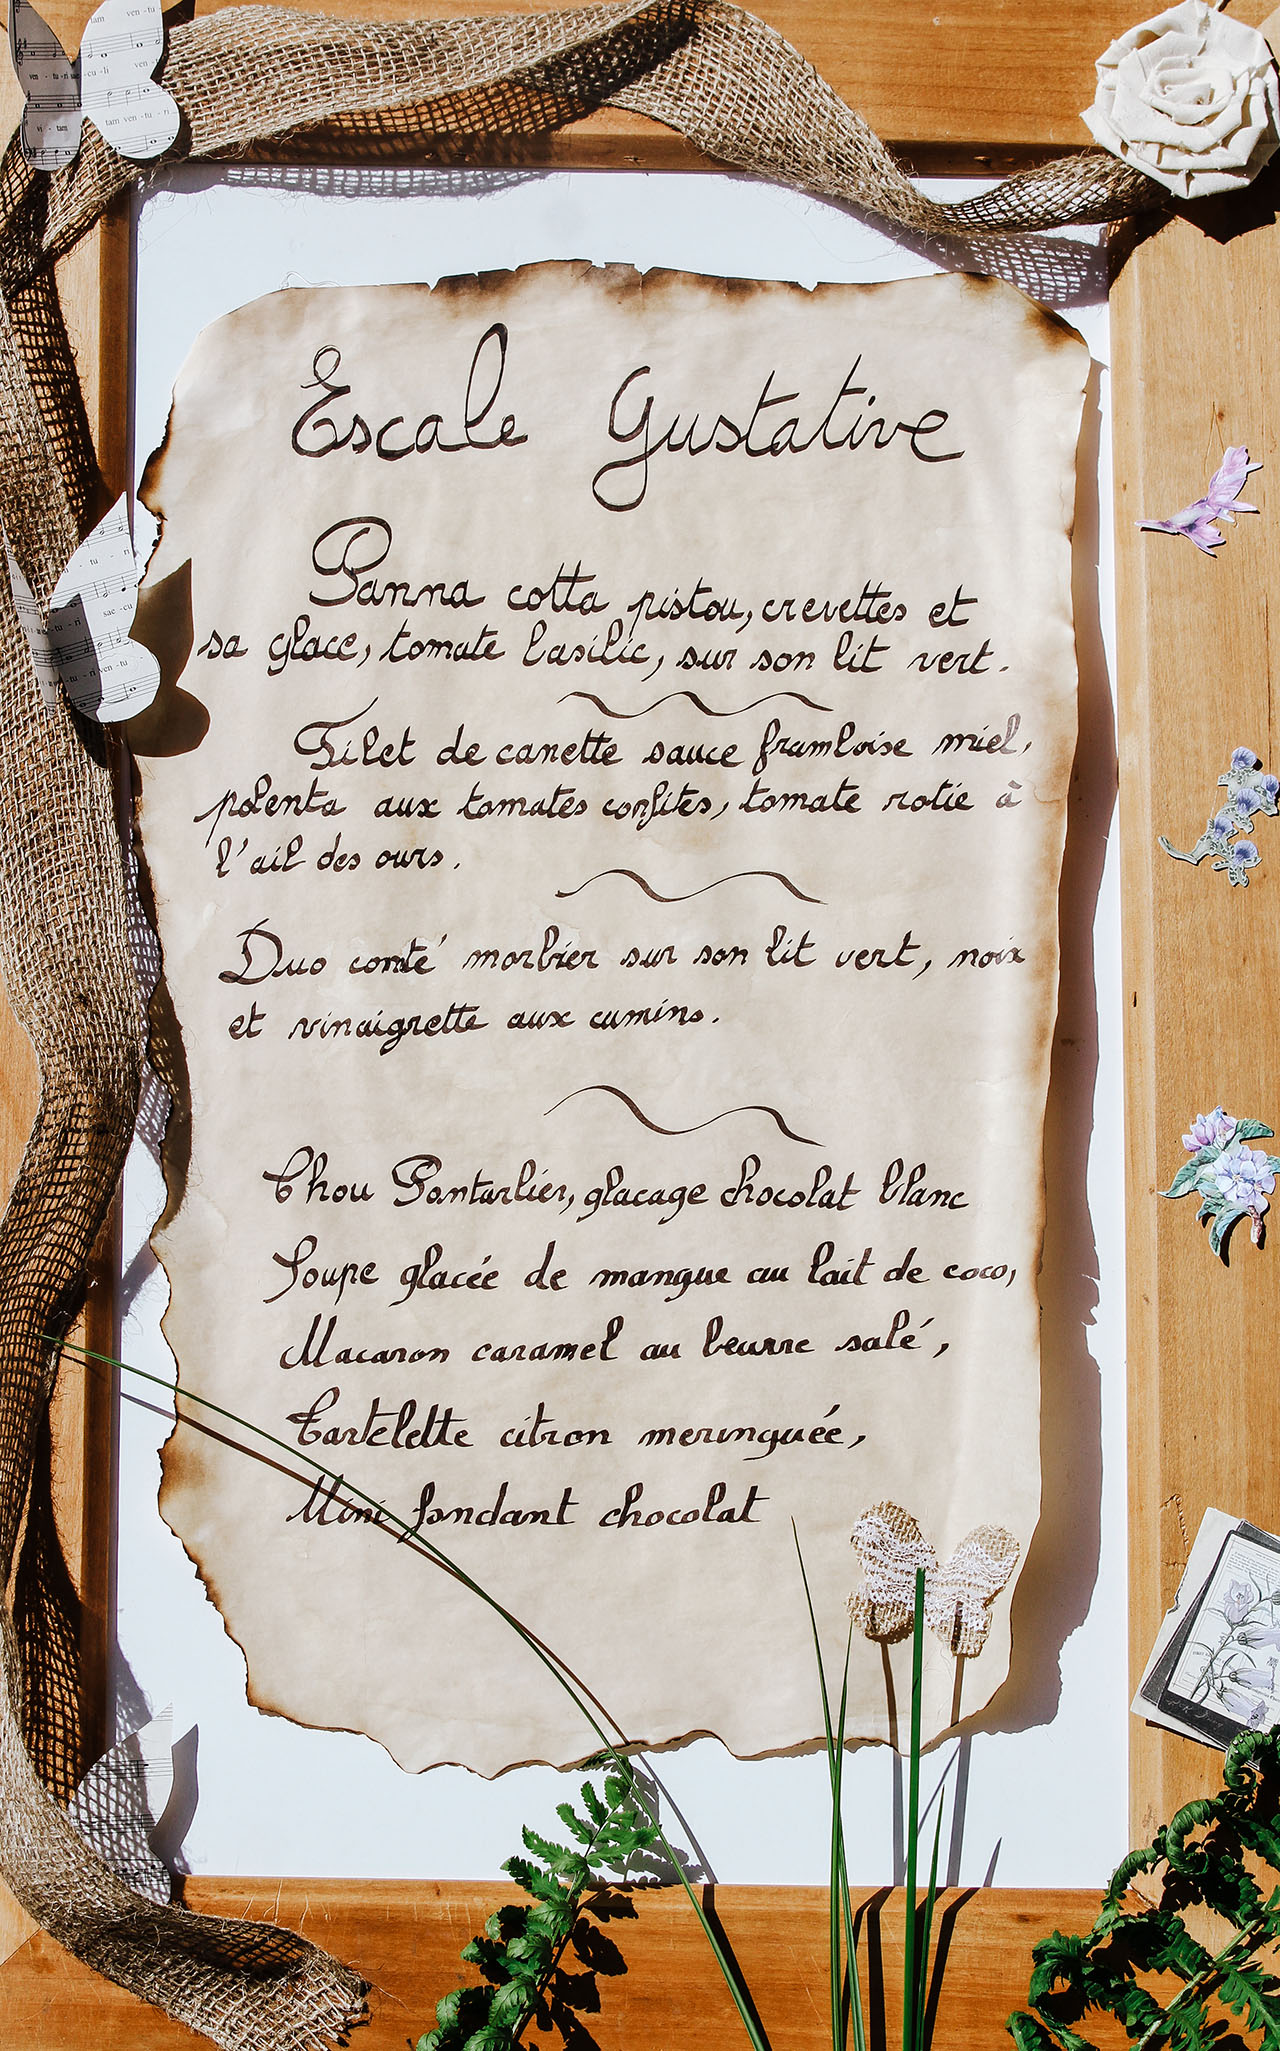 tam ven - tu -
ven - tu - ri sae - cu - li ven -
tam ven - tu - ri
vi - tam
Escale Gustative
Panna cotta pistou, crevettes et
sa glace, tomate basilic, sur son lit vert.
Filet de canette sauce framboise miel,
polenta aux tomates confites, tomate rotie à
l'ail des ours.
tu - ri
sae - cu
tu - ri ven - tu
Duo comté morbier sur son lit vert, noix
et vinaigrette aux cumins.
Chou Pontarlier, glacage chocolat blanc
Soupe glacée de mangue au lait de coco,
Macaron caramel au beurre salé,
Tartelette citron meringuée,
Mini fondant chocolat